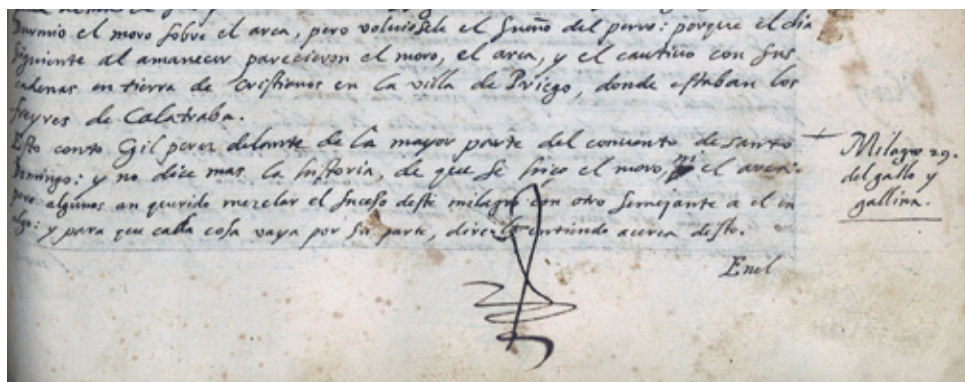 Durmio el moro sobre el arca, pero volviosele el sueño del perro: porque el dia
siguiente al amanecer parecieron el moro, el arca, y el cautiuo con sus
cadenas en tierra de cristianos en la villa de Priego, donde estaban los
freyres de Calatraba.
Esto conto Gil perez delante de la mayor parte del conuento de santo
Domingo: y no dice mas la historia, de que se hico el moro, ni el arca.
pero algunos an querido mezclar el suceso deste milagro con otro semejante a el en
algo: y para que cada cosa vaya por su parte, dire lo entiendo acerca desto.
Milagro 29.
del gallo y
gallina.
Enel